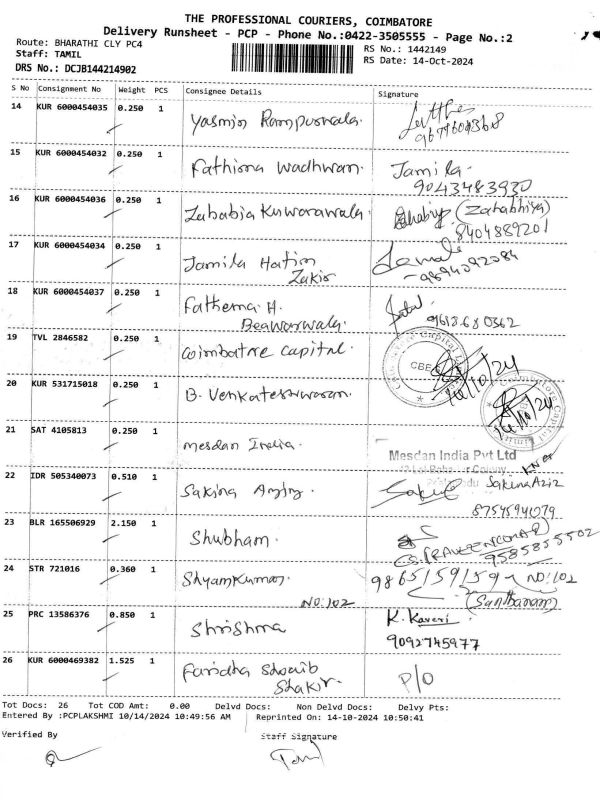 THE PROFESSIONAL COURIERS, COIMBATORE
Delivery Runsheet - PCP - Phone No.:0422-3505555 - Page No.:2
Route: BHARATHI CLY PC4
RS No.: 1442149
Staff: TAMIL
RS Date: 14-Oct-2024
DRS No.: DCJB144214902
S No Consignment No Weight PCS Consignee Details Signature
14 KUR 6000454035 0.250 1 Yasmin Rampurwala.
15 KUR 6000454032 0.250 1 Fathima Wadhwan. Jamila
9043483930
16 KUR 6000454036 0.250 1 Zababia Kuwarawala. (Zahabhiya)
8404889201
17 KUR 6000454034 0.250 1 Jamila Hatim
Zakir 9894092084
18 KUR 6000454037 0.250 1 Fathema. H.
Beawarwala. 9613680362
19 TVL 2846582 0.250 1 Coimbatore Capital.
CBE
14/10/24
20 KUR 531715018 0.250 1 B. Venkateshwaran.
14/10/24
21 SAT 4105813 0.250 1 mesdan India.
Mesdan India Pvt Ltd
22 IDR 505340073 0.510 1 Sakina Aziz. Sakina Aziz
8754594079
23 BLR 165506929 2.150 1 Shubham.
9585855502
24 STR 721016 0.360 1 Shyamkumar. 9865159159 - NO:102
NO:102 (Santhanam)
25 PRC 13586376 0.850 1 Shrishma K. Kaveri
9092745977
26 KUR 6000469382 1.525 1 Faridha Shoaib
Shakir. P/O
Tot Docs: 26 Tot COD Amt: 0.00 Delvd Docs: Non Delvd Docs: Delvy Pts:
Entered By :PCPLAKSHMI 10/14/2024 10:49:56 AM Reprinted On: 14-10-2024 10:50:41
Verified By Staff Signature